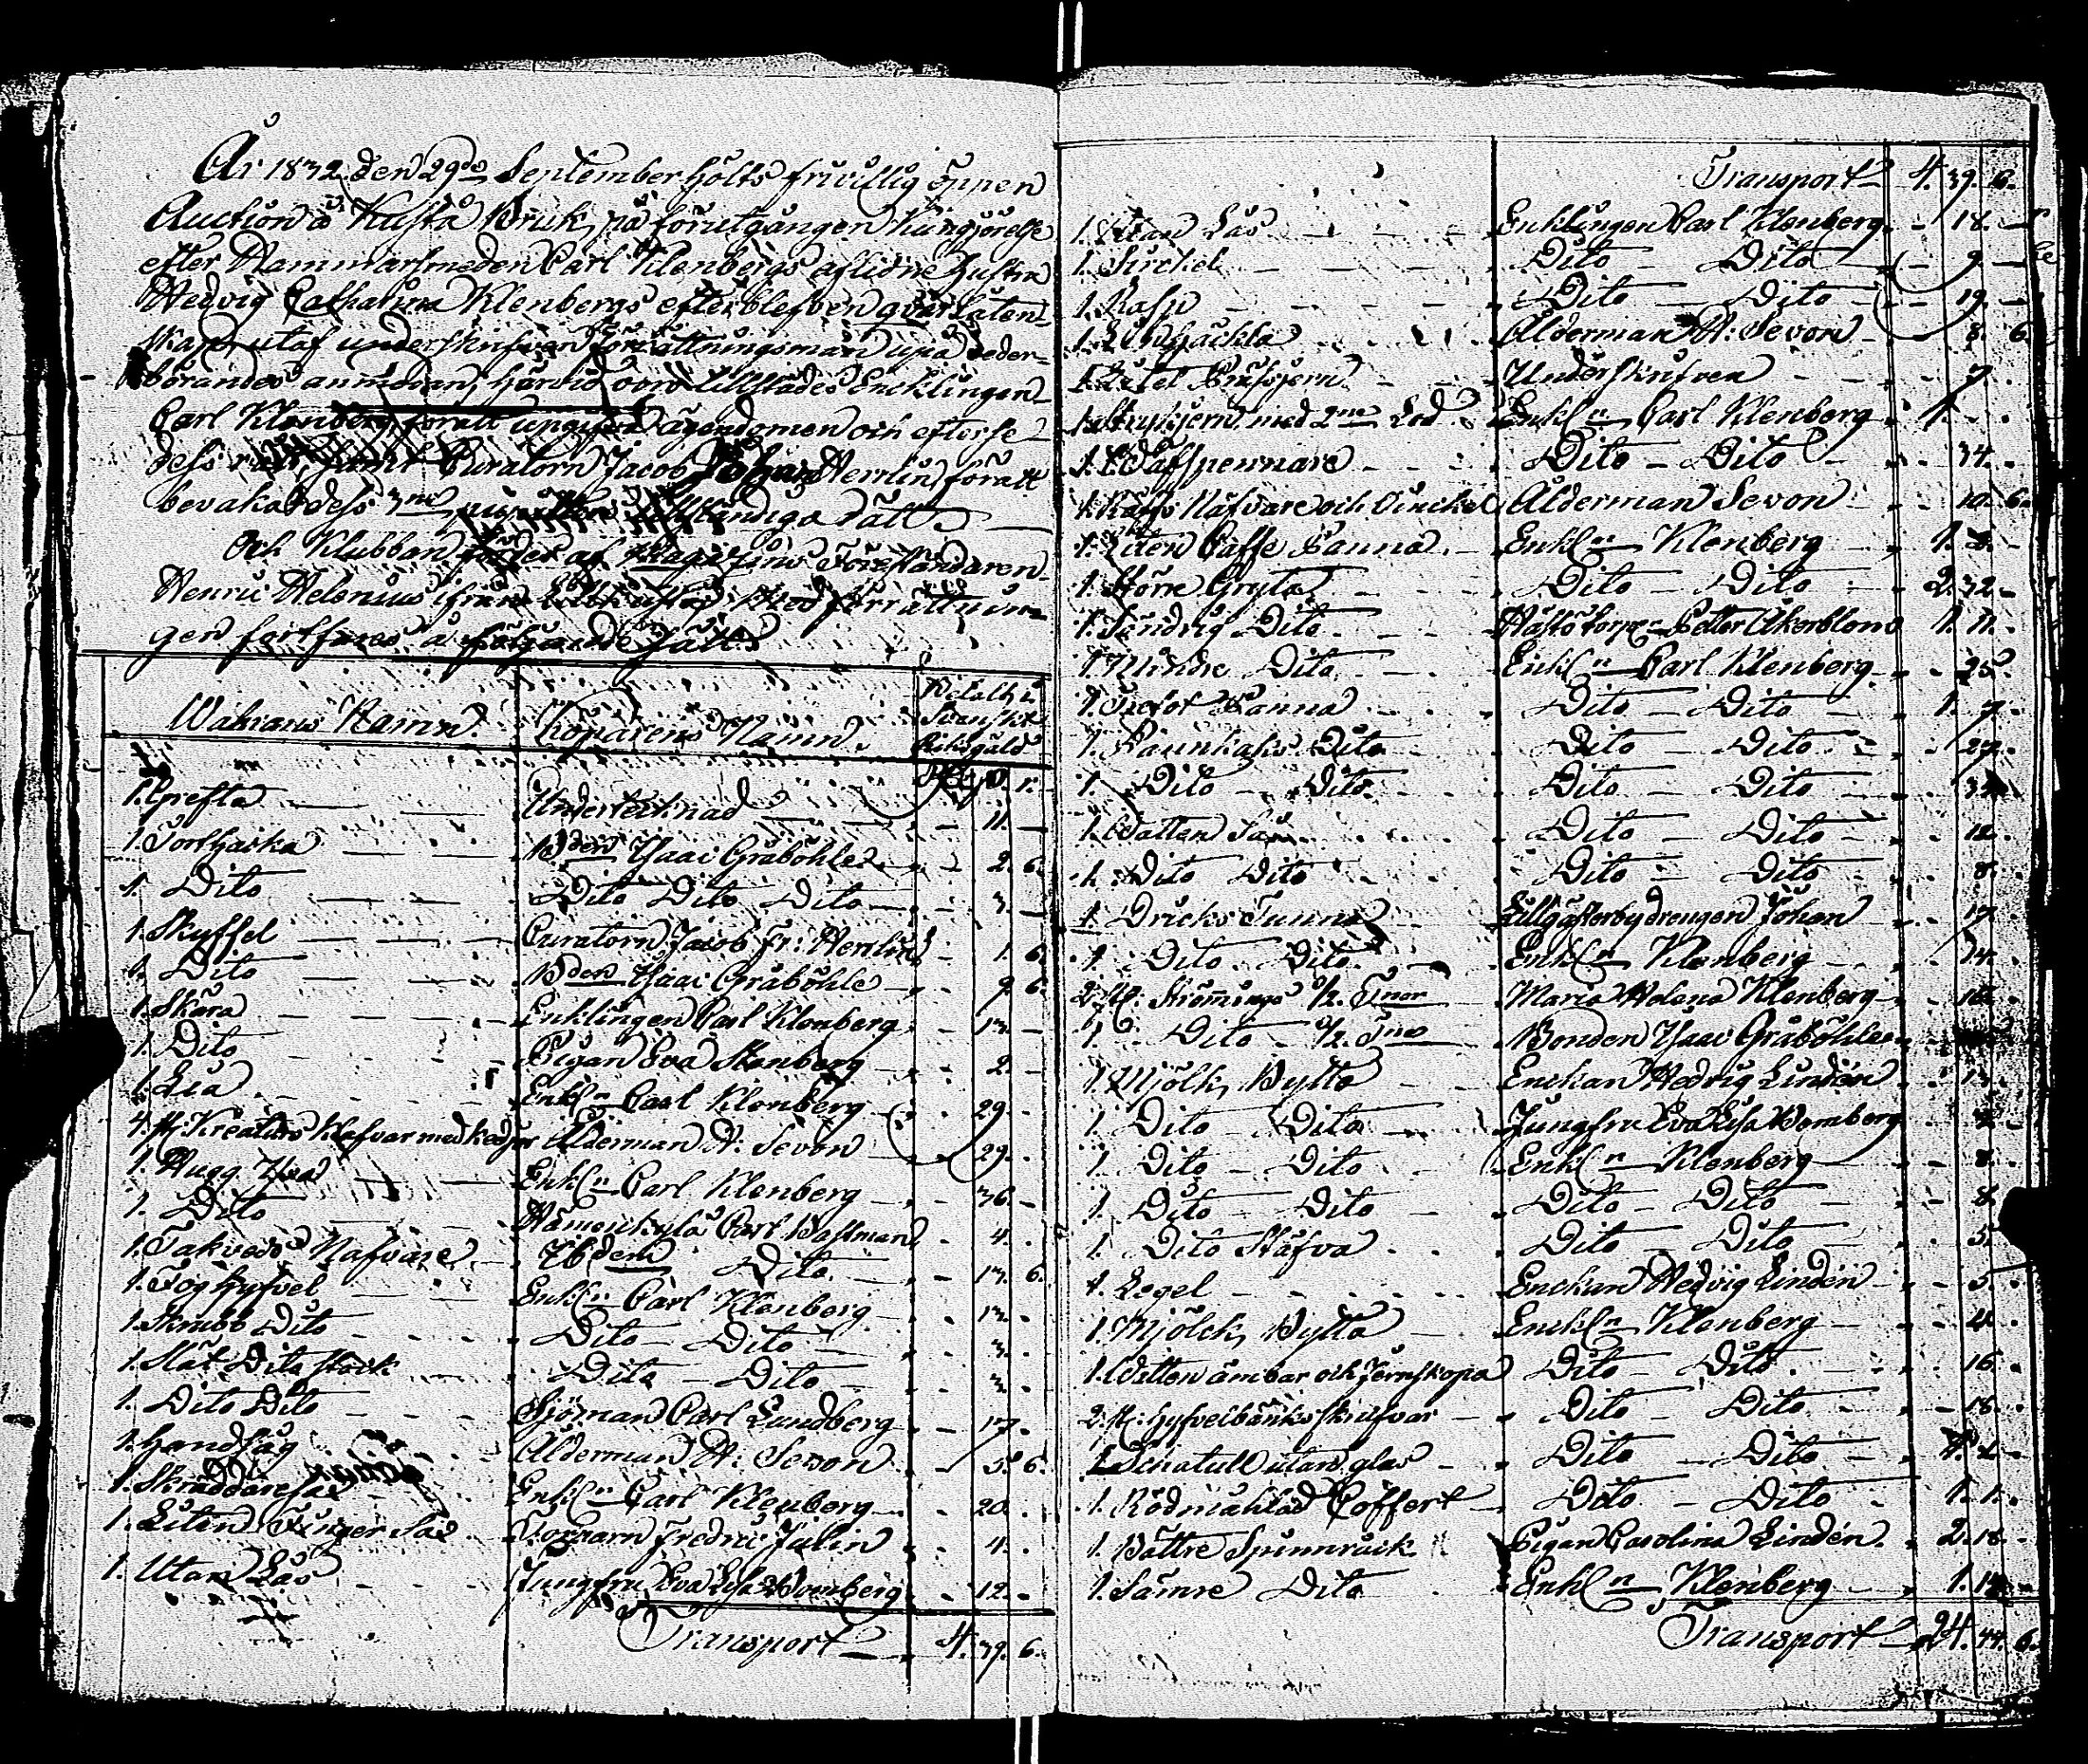 År 1832 den 29de September hölts frivillig öppen
Auction å Kusta Bruk, på förutgången Kungjörelse
efter Hammarsmeden Carl Klenbergs aflidne hustru
Hedvig Catharina Klenbergs efterblefven qvarlåten-
skap utaf underskrifven Förrättningsman uppå veder-
börandes anmodan, härvid voro tillstädes Encklingen
Carl Klenberg, för att upgifva ägendomen och efterse
dess rätt, samt Curatorn Jacob Herrlin, för att
bevaka dess 3ne rätt
Och Klubban af Magazins Föreståndaren
Henric Helenius ifrån Med förrättnin-
gen fortfores å följande sätt
Wahrans Namn. Köparens Namn. Betalt i Svenskt Riksgäld
1. Grefta Undertecknad 11. -
1. Torfhacka Bden Isaac Gräböhle 2. 6.
1. Dito Dito Dito Dito 3. -
1. Skyffel Curatorn Jacob Fr: Herrlin 1. 6.
1. Dito Bden Isaac Gräböhle 9. 6.
1. Skära Enklingen Carl Klenberg 13. -
1. Dito Pigan Eva Stenberg 2. -
1. Lia Enkln Carl Klenberg 29. -
4. st: Kreaturs Klafvar med kedjor Ålderman A: Sevon 29. -
1. Hugg Yxa Enkln Carl Klenberg 36. -
1. Dito Carl Wastman 4. -
1. Takveds Nafvare Ibdem Dito 13. 6.
1. Foghyfvel Enkln Carl Klenberg 13. -
1. Skrubb Dito Dito Dito 3. -
1. Slät Dito stock Dito Dito 3. -
1. Dito Dito Sjöman Carl Lundberg 17. -
1. Handsåg Ålderman A: Sevon 5. 6.
1. Skräddaresax Enkln Carl Klenberg 20. -
1. Liten Finger Sax Torparn Fredric Jalin 4. -
1. Utan Lås Jungfru Eva Lisa Bomberg 12. -
Transport 4. 39. 6.
Transport 4. 39. 6.
1. Utan Lås Enklingen Carl Klenberg 18. -
1. Sirckel Dito Dito 9. -
1. Rasp Dito Dito 19. -
1. Linhäckla Ålderman A: Sevon 8. 6.
1. Litet Underskrifven 7. -
1. Strykjern med 2ne Lod Enkln Carl Klenberg 1. - -
1. Dito Dito 34. -
1. Nafvare och Ålderman Sevon 10. 6.
1. Liten Caffe Panna Enkln Klenberg 1. 8. -
1. Större Gryta Dito Dito 2. 32. -
1. Sindrig Dito Petter Åkerblom 1. 11. -
1. Mindre Dito Enkln Carl Klenberg 25. -
1. Trefot Panna Dito Dito 1. 7. -
1. Pannkaks Dito Dito Dito 27. -
1. Dito Dito Dito Dito
1. Vatten Så Dito Dito 12. -
1. Dito Dito Dito Dito 8. -
1. Dricks Tunna Lillgästerbydrengen Johan 17. -
1. Dito Dito Enkln Klenberg 14. -
2. st: Strömings 1/2 Tnor Maria Helena Klenberg
1. Dito 1/2 Tna Bonden Isaac Gräböhle
1. Mjölk Bytta Enckan Hedvig Lindén 13. -
1. Dito Dito Jungfru Eva Lisa Bomberg
1. Dito Dito Enkln Klenberg 8. -
1. Dito Dito Dito Dito 8.
1. Dito Stäfva Dito Dito 5.
1. Legel Enckan Hedvig Lindén 5. -
1. Mjölck Bytta Enckln Klenberg 4. -
1. Vatten ämbar och Jernskopa Dito Dito 16. -
2. st: Hyfvelbänks skrufvar Dito Dito 18. -
1. utan glas Dito Dito
1. Rödmåhlad Coffert Dito Dito 1. 1. -
1. Bättre Spinnrock Pigan Carolina Lindén 2. 18. -
1. Sämre Dito Enkln Klenberg
Transport 24. 44. 6.